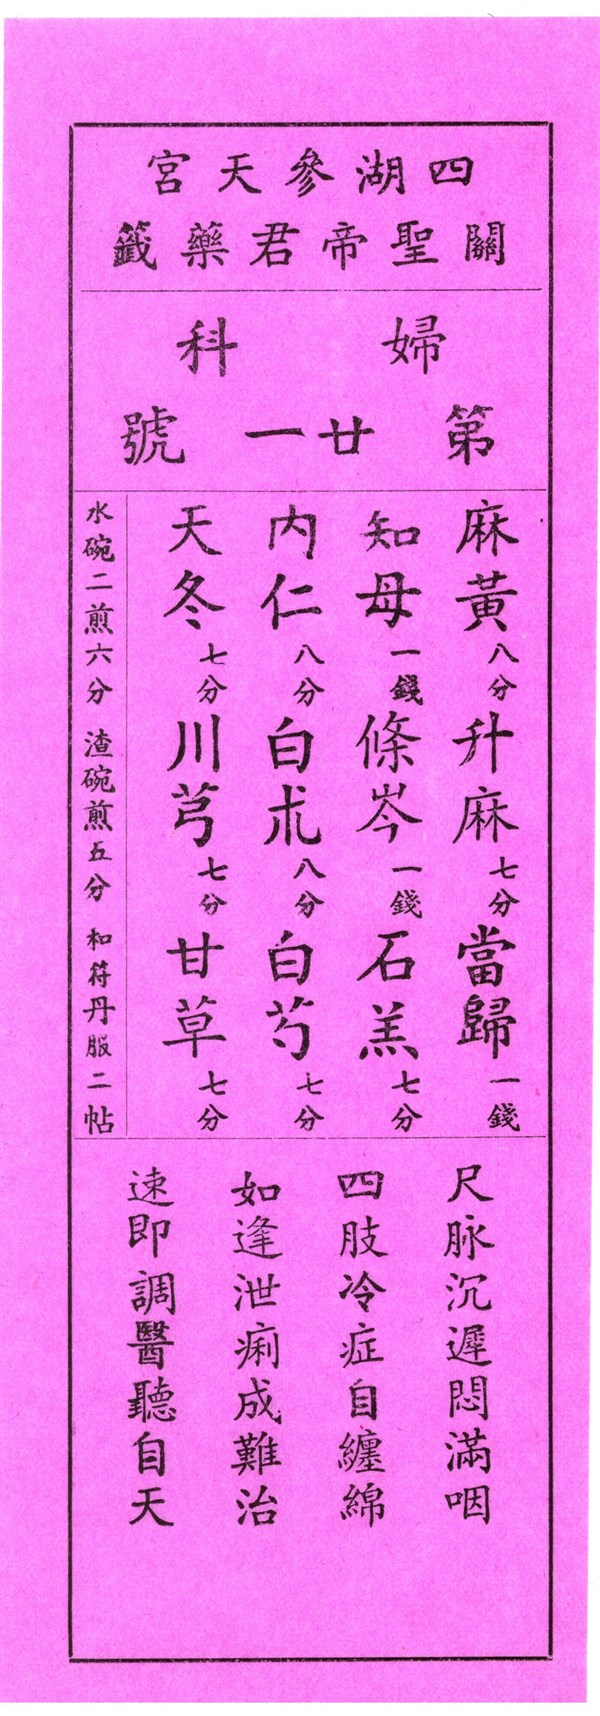 四湖參天宮
關聖帝君藥籤
婦科
第廿一號
麻黃八分 升麻七分 當歸一錢
知母一錢 條岑一錢 石羔七分
內仁八分 白朮八分 白芍七分
天冬七分 川芎七分 甘草七分
水碗二煎六分 渣碗煎五分 和符丹服二帖
尺脉沉遲悶滿咽
四肢冷症自纏綿
如逢泄痢成難治
速即調醫聽自天